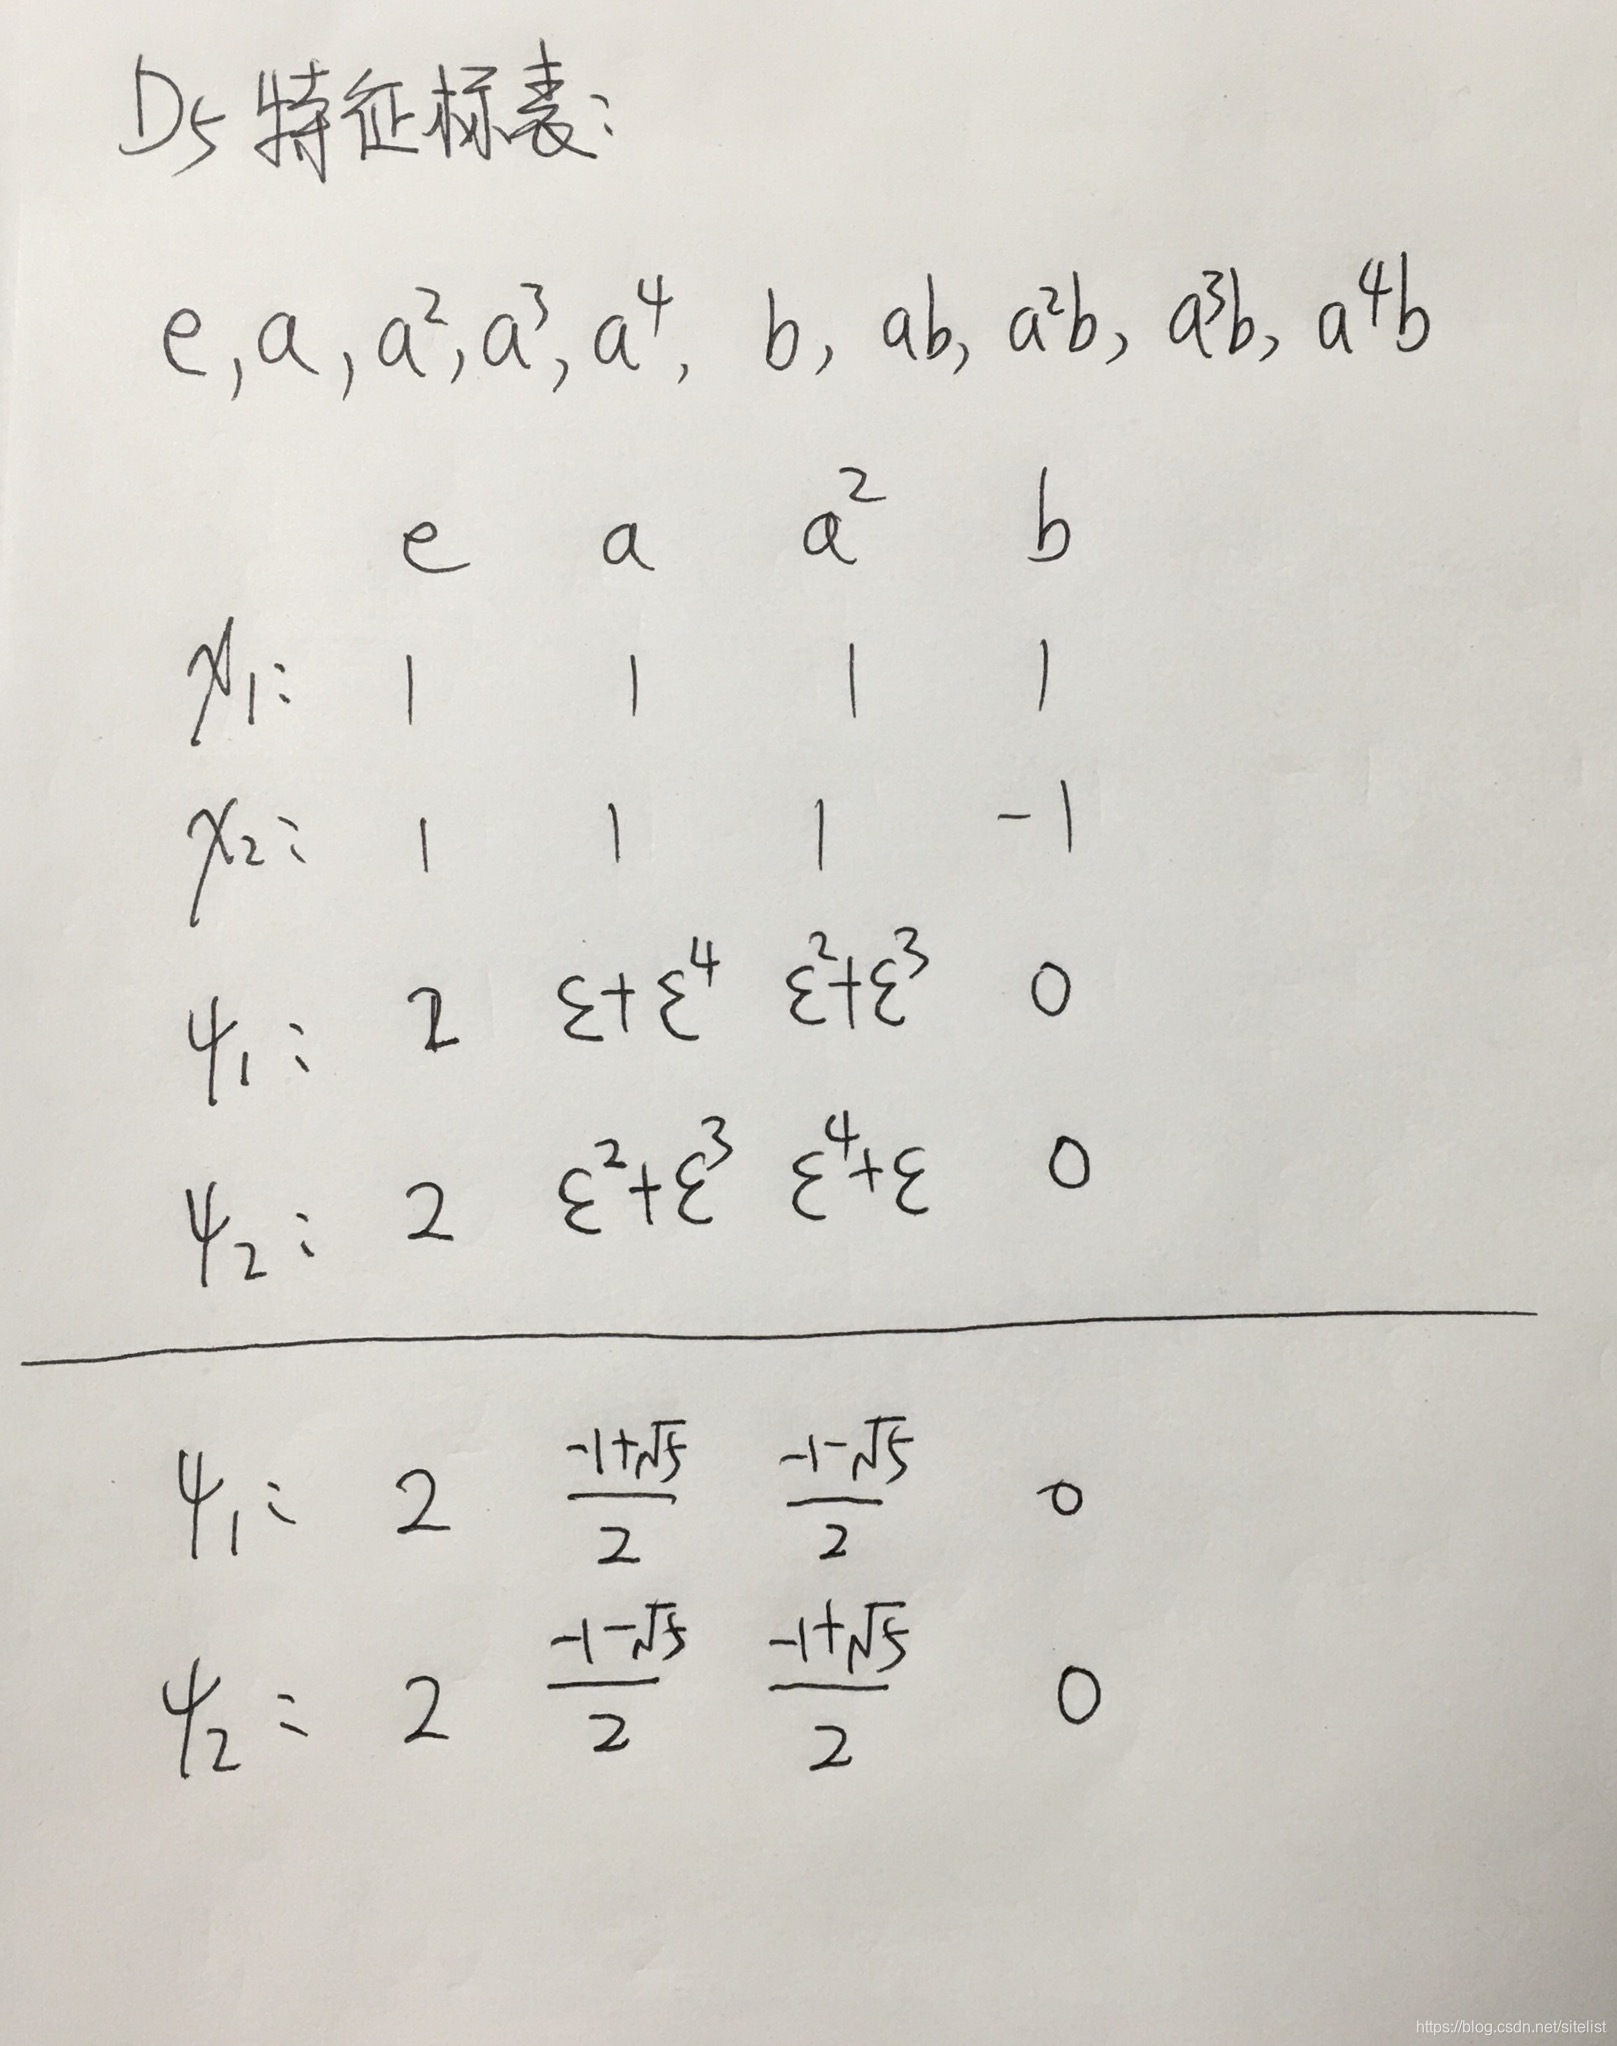 D5 特征标表:
e, a, a², a³, a⁴, b, ab, a²b, a³b, a⁴b
e a a² b
χ₁: 1 1 1 1
χ₂: 1 1 1 -1
ψ₁: 2 ε+ε⁴ ε²+ε³ 0
ψ₂: 2 ε²+ε³ ε⁴+ε 0
ψ₁: 2 (-1+√5)/2 (-1-√5)/2 0
ψ₂: 2 (-1-√5)/2 (-1+√5)/2 0
https://blog.csdn.net/sitelist